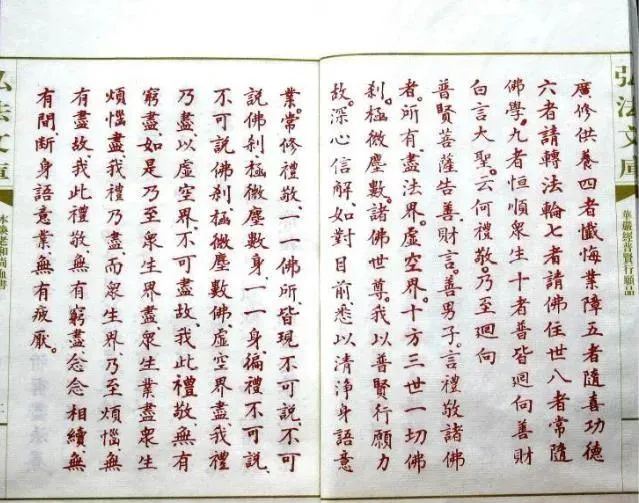 弘法文庫
華嚴經普賢行願品
廣修供養四者懺悔業障五者隨喜功德
六者請轉法輪七者請佛住世八者常隨
佛學。九者恒順眾生十者普皆迴向善財
白言大聖。云何禮敬。乃至迴向
普賢菩薩告善財言。善男子。言禮敬諸佛
者。所有盡法界。虛空界。十方三世一切佛
剎。極微塵數。諸佛世尊。我以普賢行願力
故。深心信解、如對目前悉以清淨身語意
業。常修禮敬、一一佛所、皆現不可說、不可
說佛剎極微塵數身、一一身、徧禮不可說、
不可說佛剎極微塵數佛、虛空界盡我禮
乃盡以虛空界、不可盡故、我此禮敬無有
窮盡、如是乃至眾生界盡、眾生業盡眾生
煩惱盡我禮乃盡、而眾生界、乃至煩惱、無
有盡故、我此禮敬、無有窮盡念念相續、無
有間斷、身語意業、無有疲厭。
弘法文庫
本煥老和尚血書